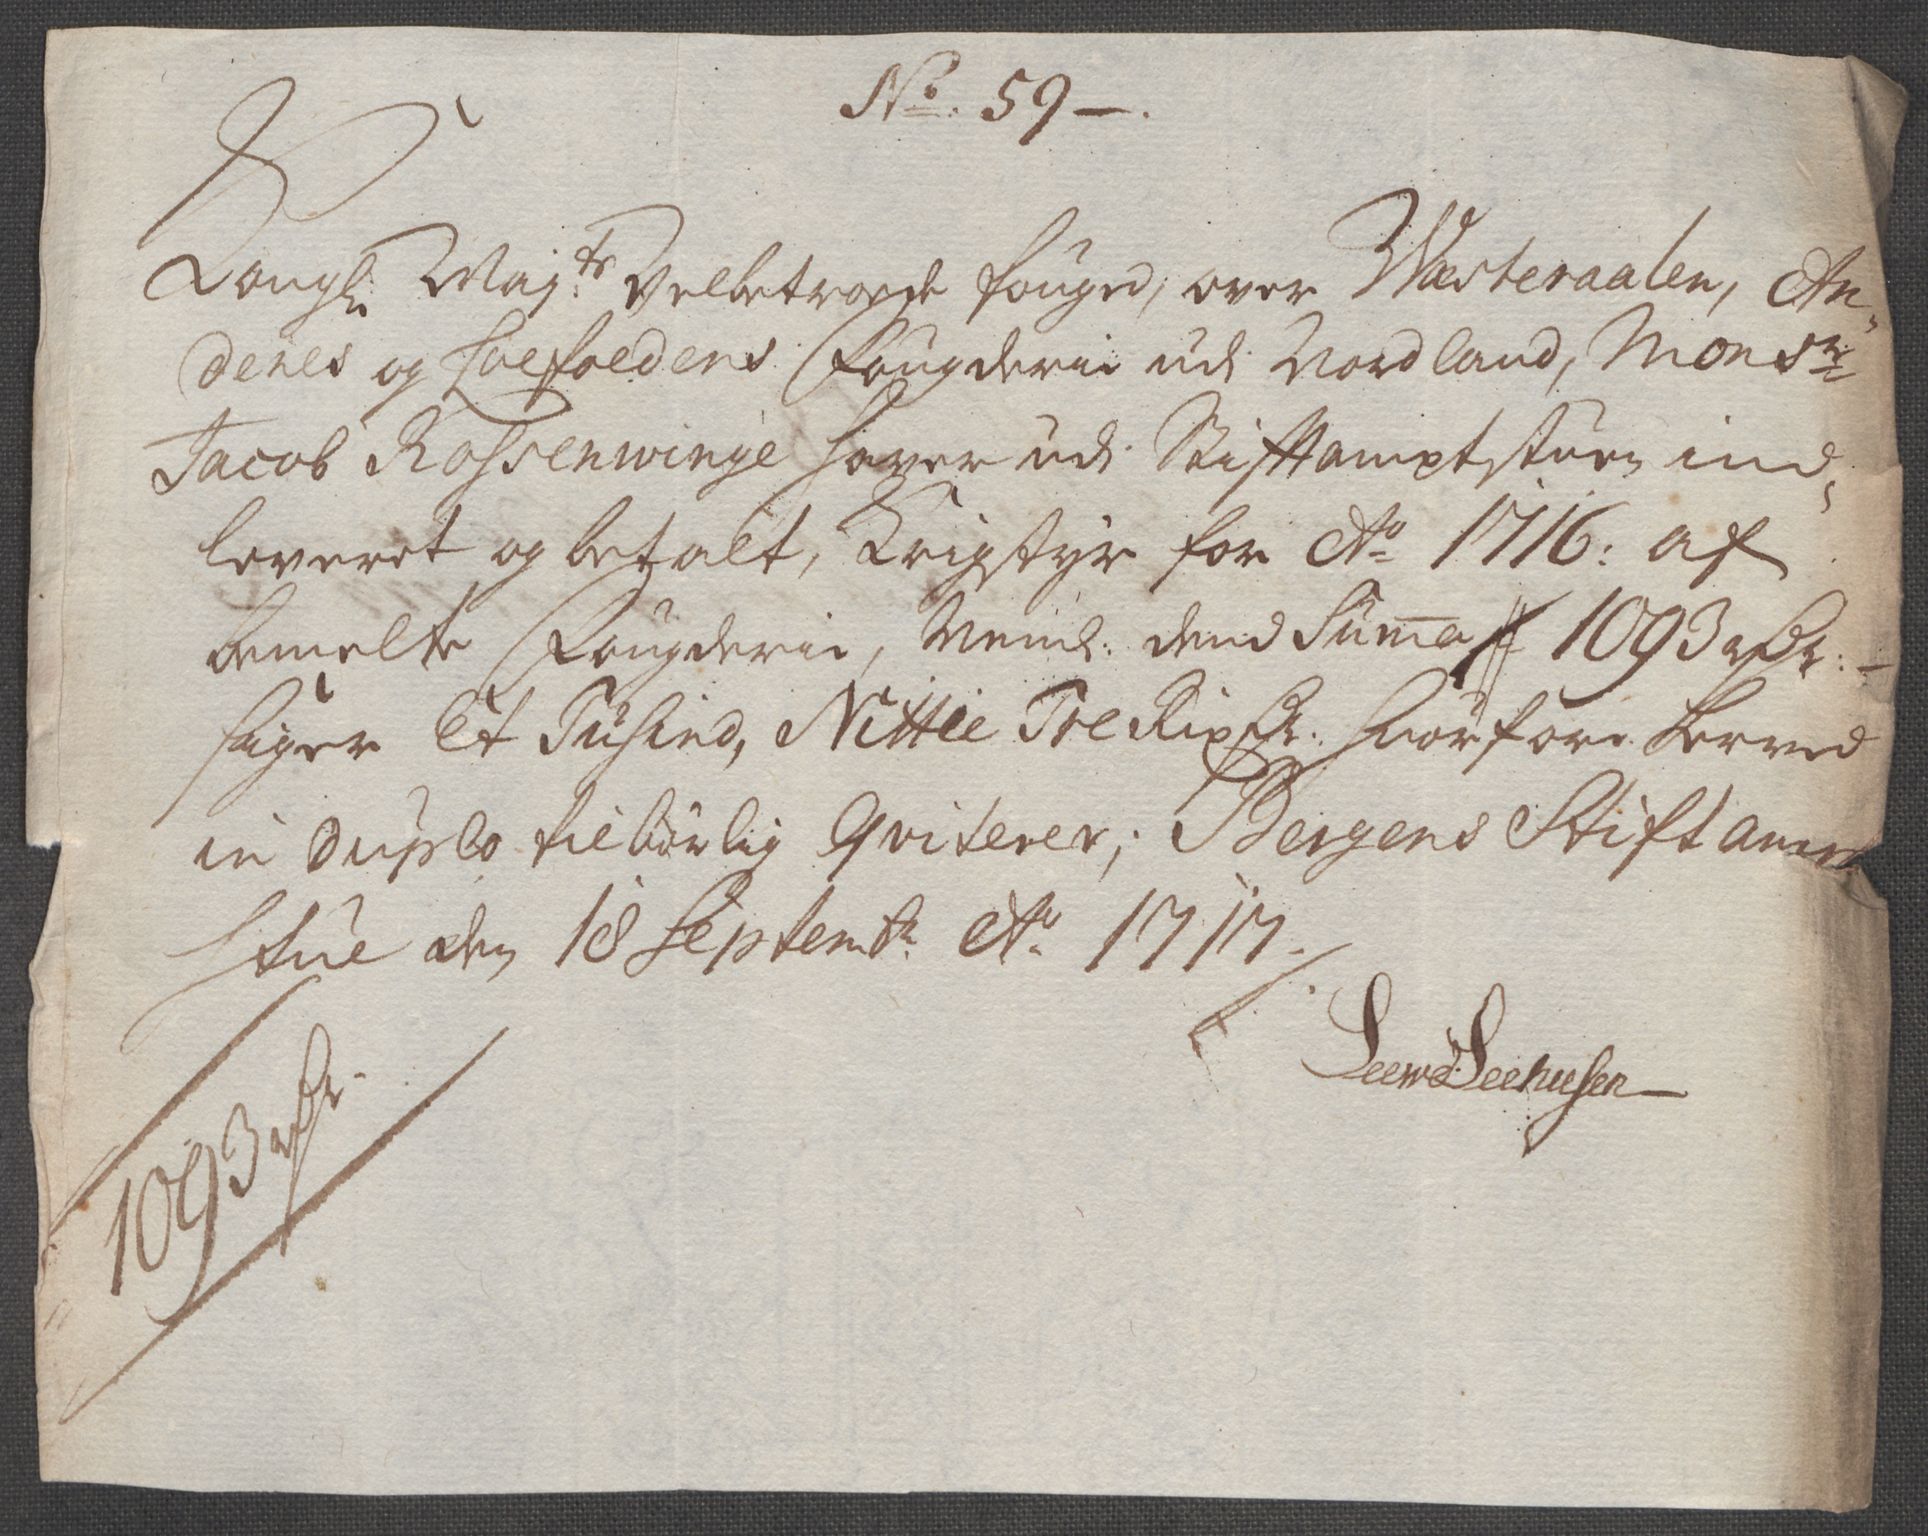 No. 59 —.
Kongl: Maj.ts Velbetroede fouged, over Wæsteraalen, An-
denes og Loefoedens Fougderie udi Nordland, Monsr
Jacob Rossenwinge haver udi Stiftamptstuen ind-
leveret og betalt, Krigstyr for Ao 1716: af
bemelte Fougderie, Neml: dend Summa 1093 rdr: –
siger Et Tusind, Nittie Tre Rixdr. huorfore herved
in duplo tilbørlig qviterer; Bergens Stiftampt
stue den 18 Septembr. Ao 1717.
Leew
1093 rdr.